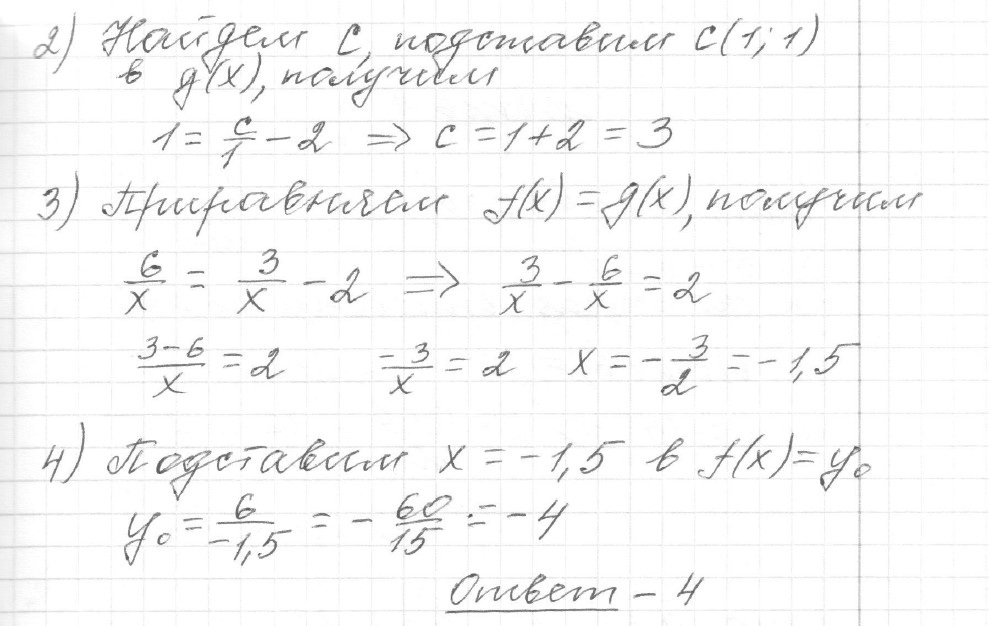 2) Найдем с, подставим с(1; 1)
в g(x), получим
1 = c/1 - 2 => c = 1 + 2 = 3
3) Приравняем f(x) = g(x), получим
6/x = 3/x - 2 => 3/x - 6/x = 2
3-6/x = 2 -3/x = 2 x = -3/2 = -1,5
4) Подставим x = -1,5 в f(x) = y₀
y₀ = 6/-1,5 = - 60/15 = -4
Ответ - 4